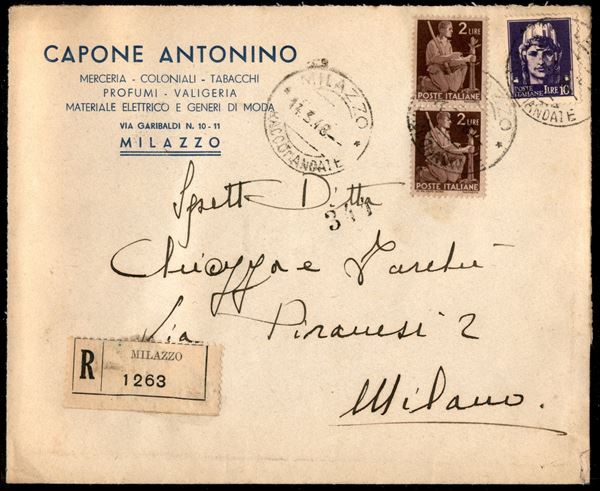 CAPONE ANTONINO
MERCERIA - COLONIALI - TABACCHI
PROFUMI - VALIGERIA
MATERIALE ELETTRICO E GENERI DI MODA
VIA GARIBALDI N. 10 - 11
MILAZZO
* MILAZZO *
RACCOMANDATE
2 LIRE
POSTE ITALIANE
2 LIRE
POSTE ITALIANE
POSTE ITALIANE
LIRE 10
Spett Ditta
341
Chiozza e Turchi
Via Piranesi 2
Milano.
R
MILAZZO
1263